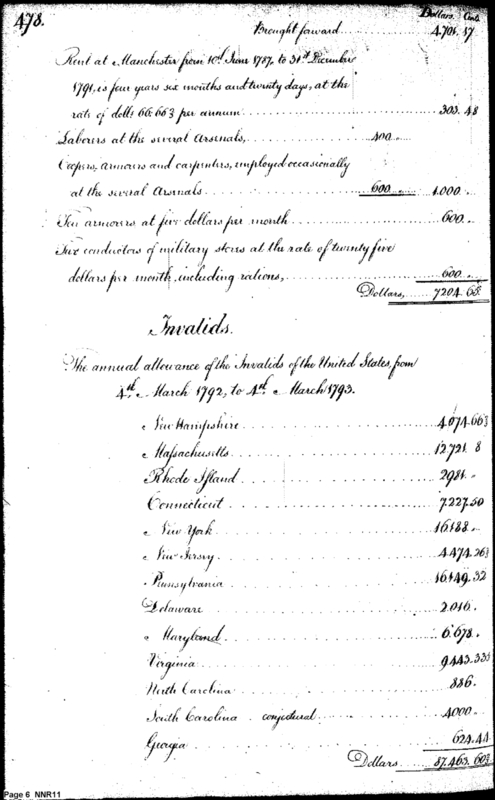 478.
Dollars. Cents
Brought forward 4.701. 17
Rent at Manchester from 10th June 1787, to 31st December
1791, is four years six months and twenty days, at the
rate of dolls 66.66⅔ per annum 303. 48
Laborers at the several Arsenals, 400..
Coopers, armourers and carpenters, employed occasionally
at the several Arsenals 600 1.000.
Ten armorers at five dollars per month 600.
Two conductors of military stores at the rate of twenty five
dollars per month, including rations, 600.
Dollars, 7204. 65.
Invalids.
The annual allowance of the Invalids of the United States, from
4th March 1792, to 4th March 1793.
New Hampshire 4.074.66⅔
Massachusetts 12.721. 8
Rhode Island 2981.
Connecticut 7.227.50
New York 16.188.
New Jersey 4.474.26⅔
Pennsylvania 16.149.32
Delaware 2.016.
Maryland 6.678.
Virginia 9.443.33⅓
North Carolina 886.
South Carolina conjectural 4000.
Georgia 624.44
Dollars 87.463.60⅔
Page 6 NNR11